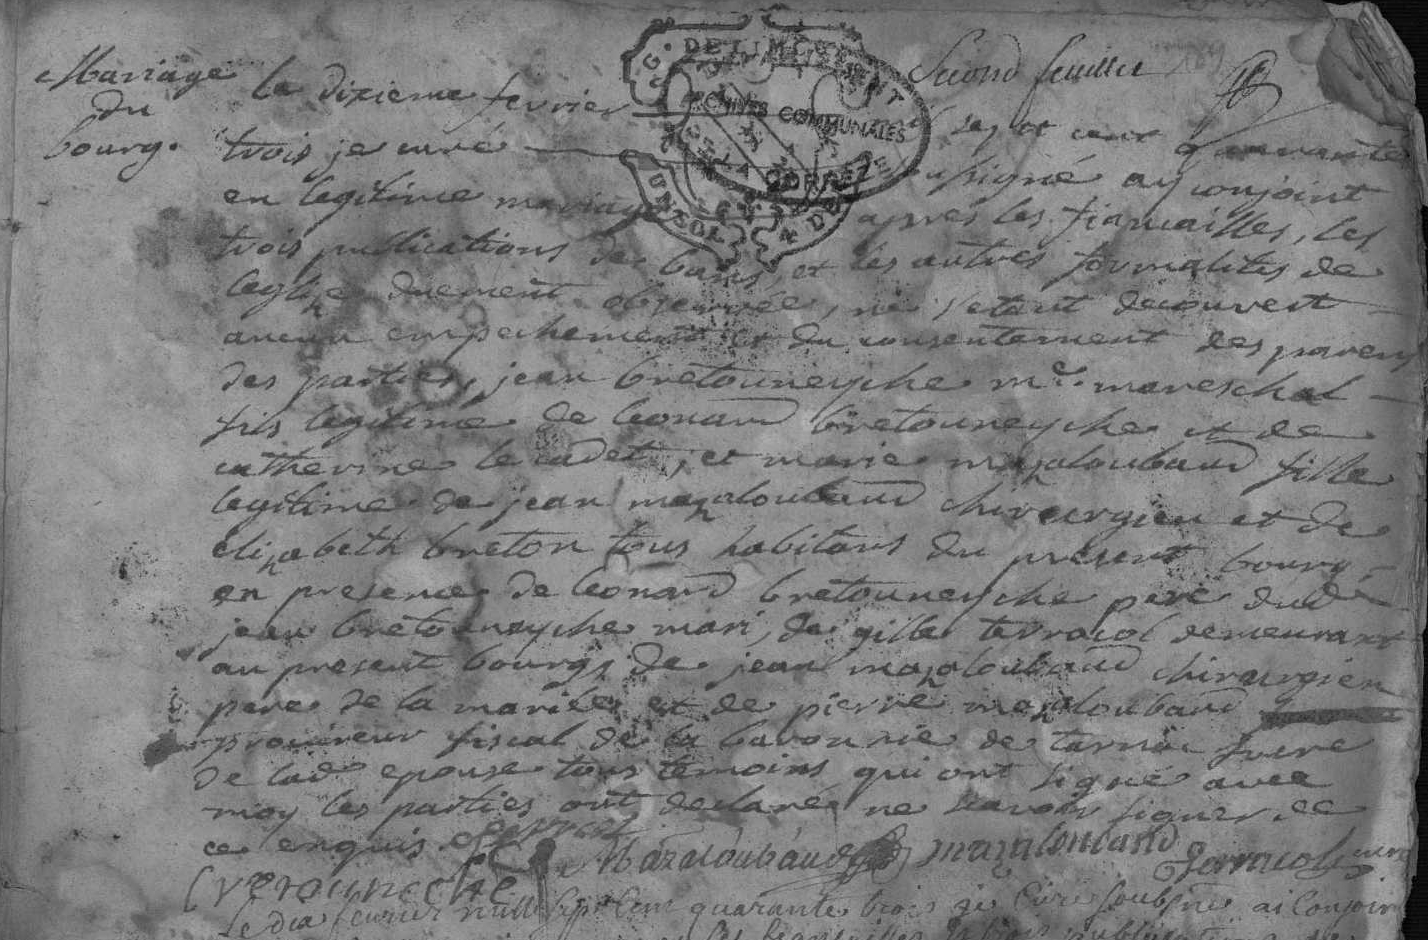 Second feuillet
Mariage
du
bourg.
Le dixieme fevrier sept cent quarante
trois je curé soussigné ay conjoint
en legitime mariage apres les fiancailles, les
trois publications de bans, et les autres formalités de
leglize duement observée, ne s'etant decouvert
aucun empechement et du consentement des parens
des parties, jean bretouneyche me. mareschal
fils legitime de leonard bretouneyche et de
catherine le cadet, et marie mazaloubaud fille
legitime de jean mazaloubaud chirurgien et de
elizabeth breton tous habitans du present bourg
en presence de leonard bretouneyche pere dud
jean bretouneyche mari, de gille terracol demeurant
au present bourg, de jean mazaloubaud chirurgien
pere de la mariée et de pierre mazaloubaud
procureur fiscal de la baronnie de tarnac frere
de lad epouse tous temoins qui ont signé avec
moy les parties ont declaré ne scavoir signer de
ce enquis
Mazaloubaud mazaloubaud Terracol
Le dix feurier mille sept cent quarante trois je Curé soubsiné ai Conjoin
ARCHIVES COMMUNALES
DE LA CORREZE
G. DE LIM